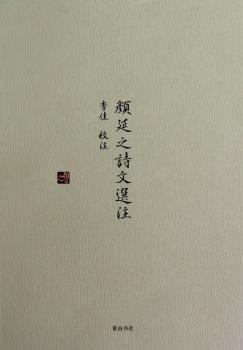 顏延之詩文選注
李佳 校注
黄山书社